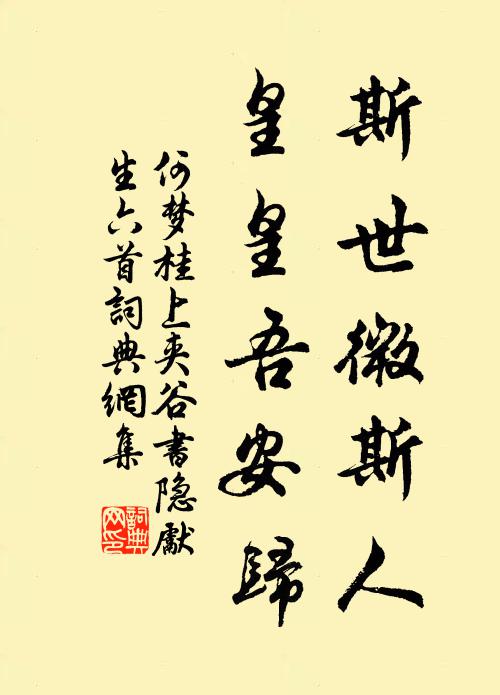 斯世微斯人
皇皇吾安歸
何梦桂上夹谷書隐獻
生六首詞典網集
詞典
网印